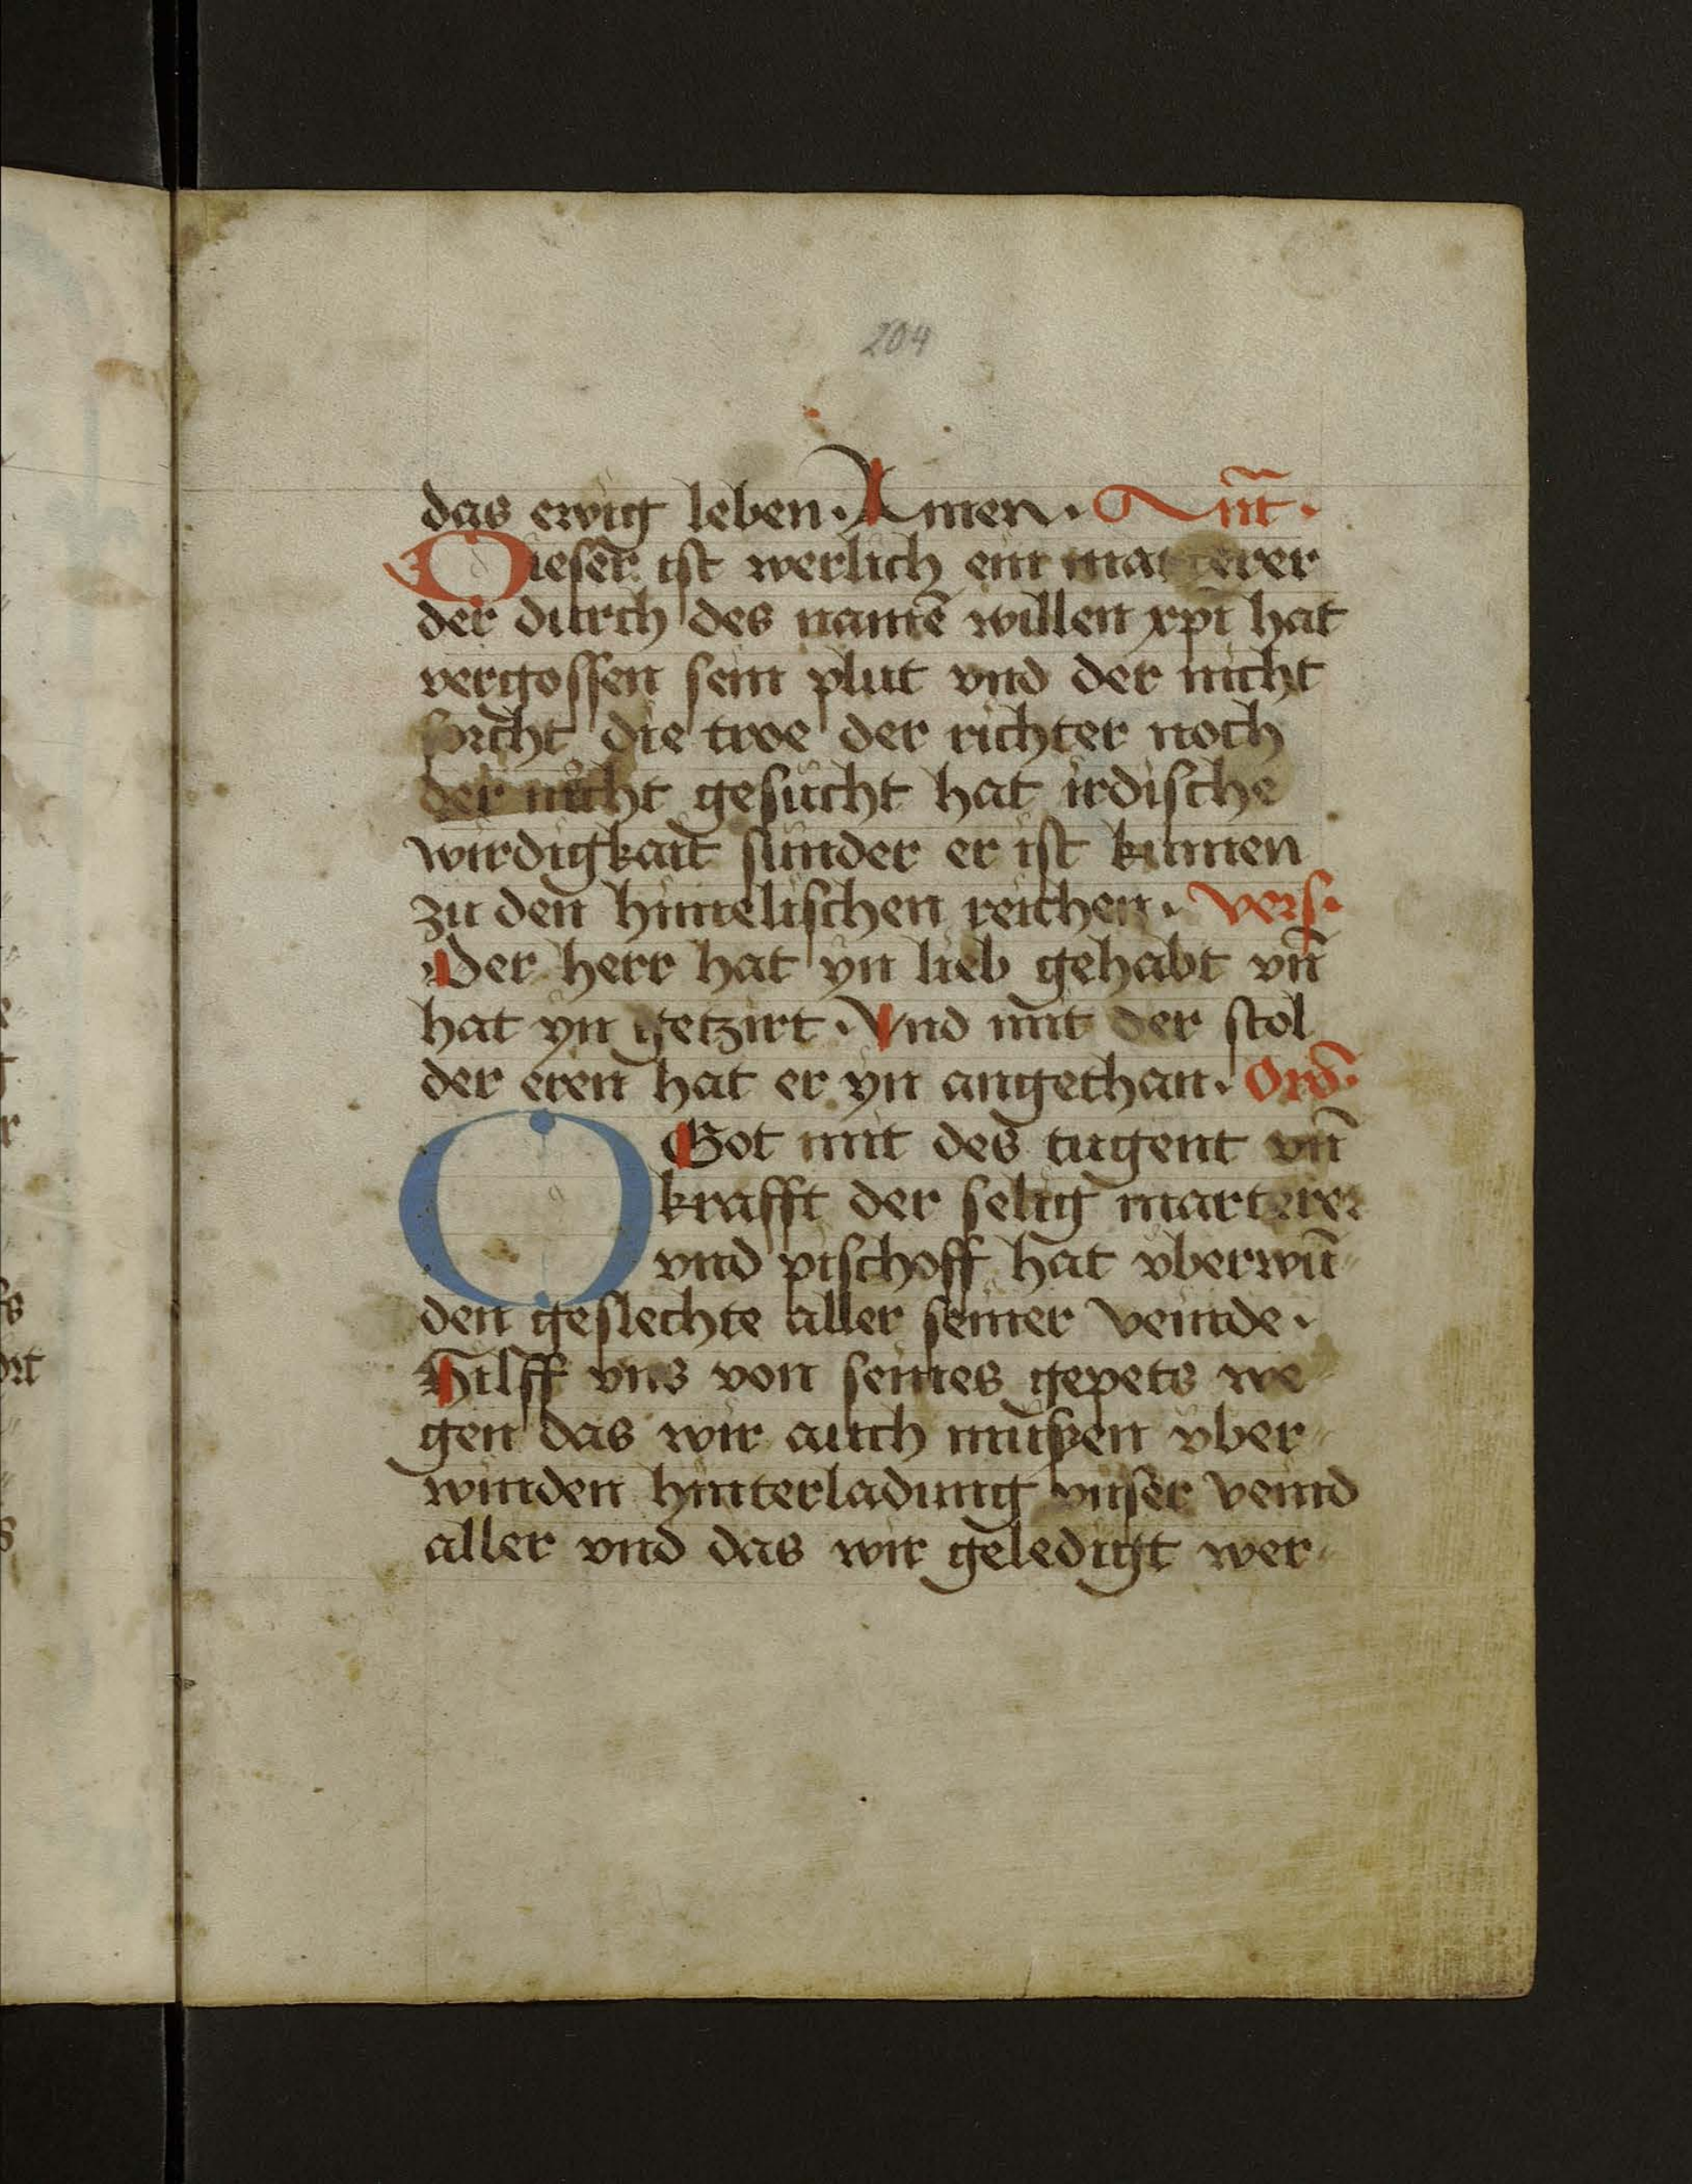 204
das ewig leben · Amen · Ant̄ ·
Dieser ist werlich ein marterer
der durch des namē willen xp̄i hat
vergossen sein plut vnd der nicht
forcht die troe der richter noch
der nicht gesucht hat irdische
wirdigkait sunder er ist kumen
zu den himelischen reichen · vers ·
Der herr hat yn lieb gehabt vn̄
hat yn getzirt · Vnd mit der stol
der eren hat er yn angethan · Orō ·
O Got mit des tugent vn̄
krafft der selig marterer
vnd pischoff hat vberwū
den geslechte aller seiner veinde ·
Hilff vns von seines gepets we
gen das wir auch mußen vber
winden hinterladung vnser veind
aller vnd das wir geledigt wer